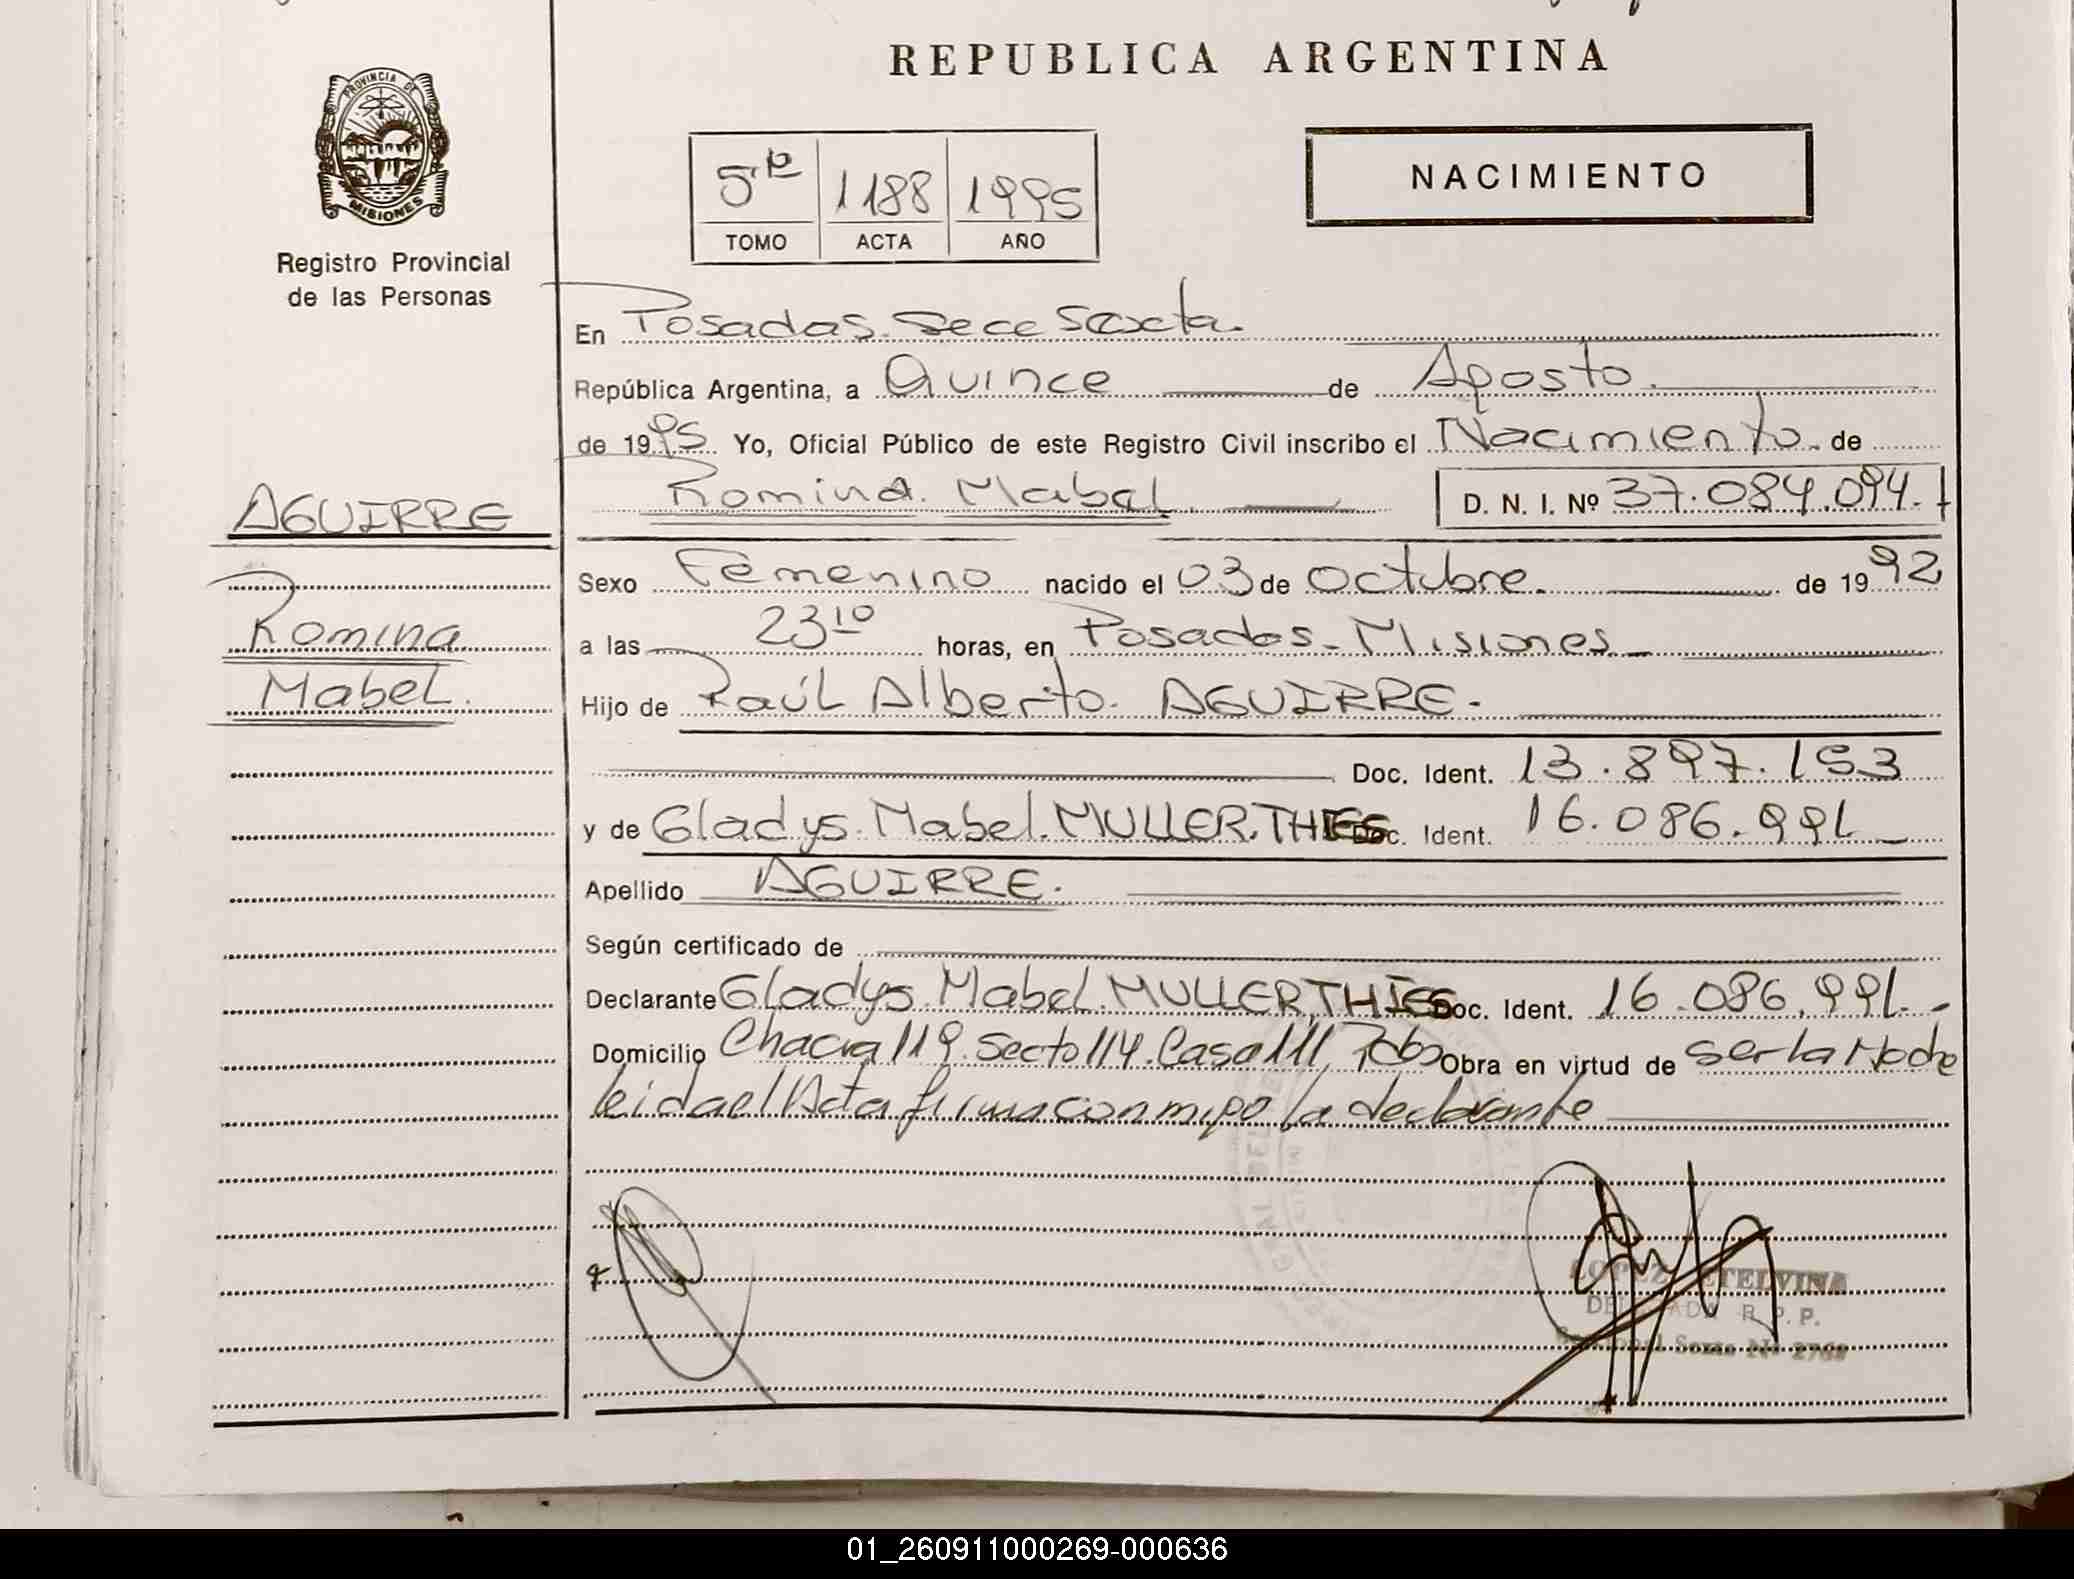 REPUBLICA ARGENTINA
PROVINCIA DE
MISIONES
Registro Provincial
de las Personas
5to 1188 1995
TOMO ACTA AÑO
NACIMIENTO
En Posadas. Secc Sexta.
República Argentina, a Quince de Agosto.
de 1995 Yo, Oficial Público de este Registro Civil inscribo el Nacimiento. de
Romina. Mabel D. N. I. Nº 37.084.094.
AGUIRRE
Romina
Mabel.
Sexo Femenino nacido el 03 de Octubre. de 1992
a las 23 10 horas, en Posadas - Misiones
Hijo de Raúl Alberto. AGUIRRE.
Doc. Ident. 13.897.153
y de Gladys. Mabel. MULLER. THIES Doc. Ident. 16.086.991
Apellido AGUIRRE.
Según certificado de
Declarante Gladys Mabel. MULLER, THIES Doc. Ident. 16.086.991.
Domicilio Chacra 119. Secto 114. Casa 111 Pdas Obra en virtud de ser la Madre
leida el Acta firma con migo la declarante
LOPEZ ETELVINA
DELEGADA R. P. P.
Seccional Sexta Nº 2768
01_260911000269-000636